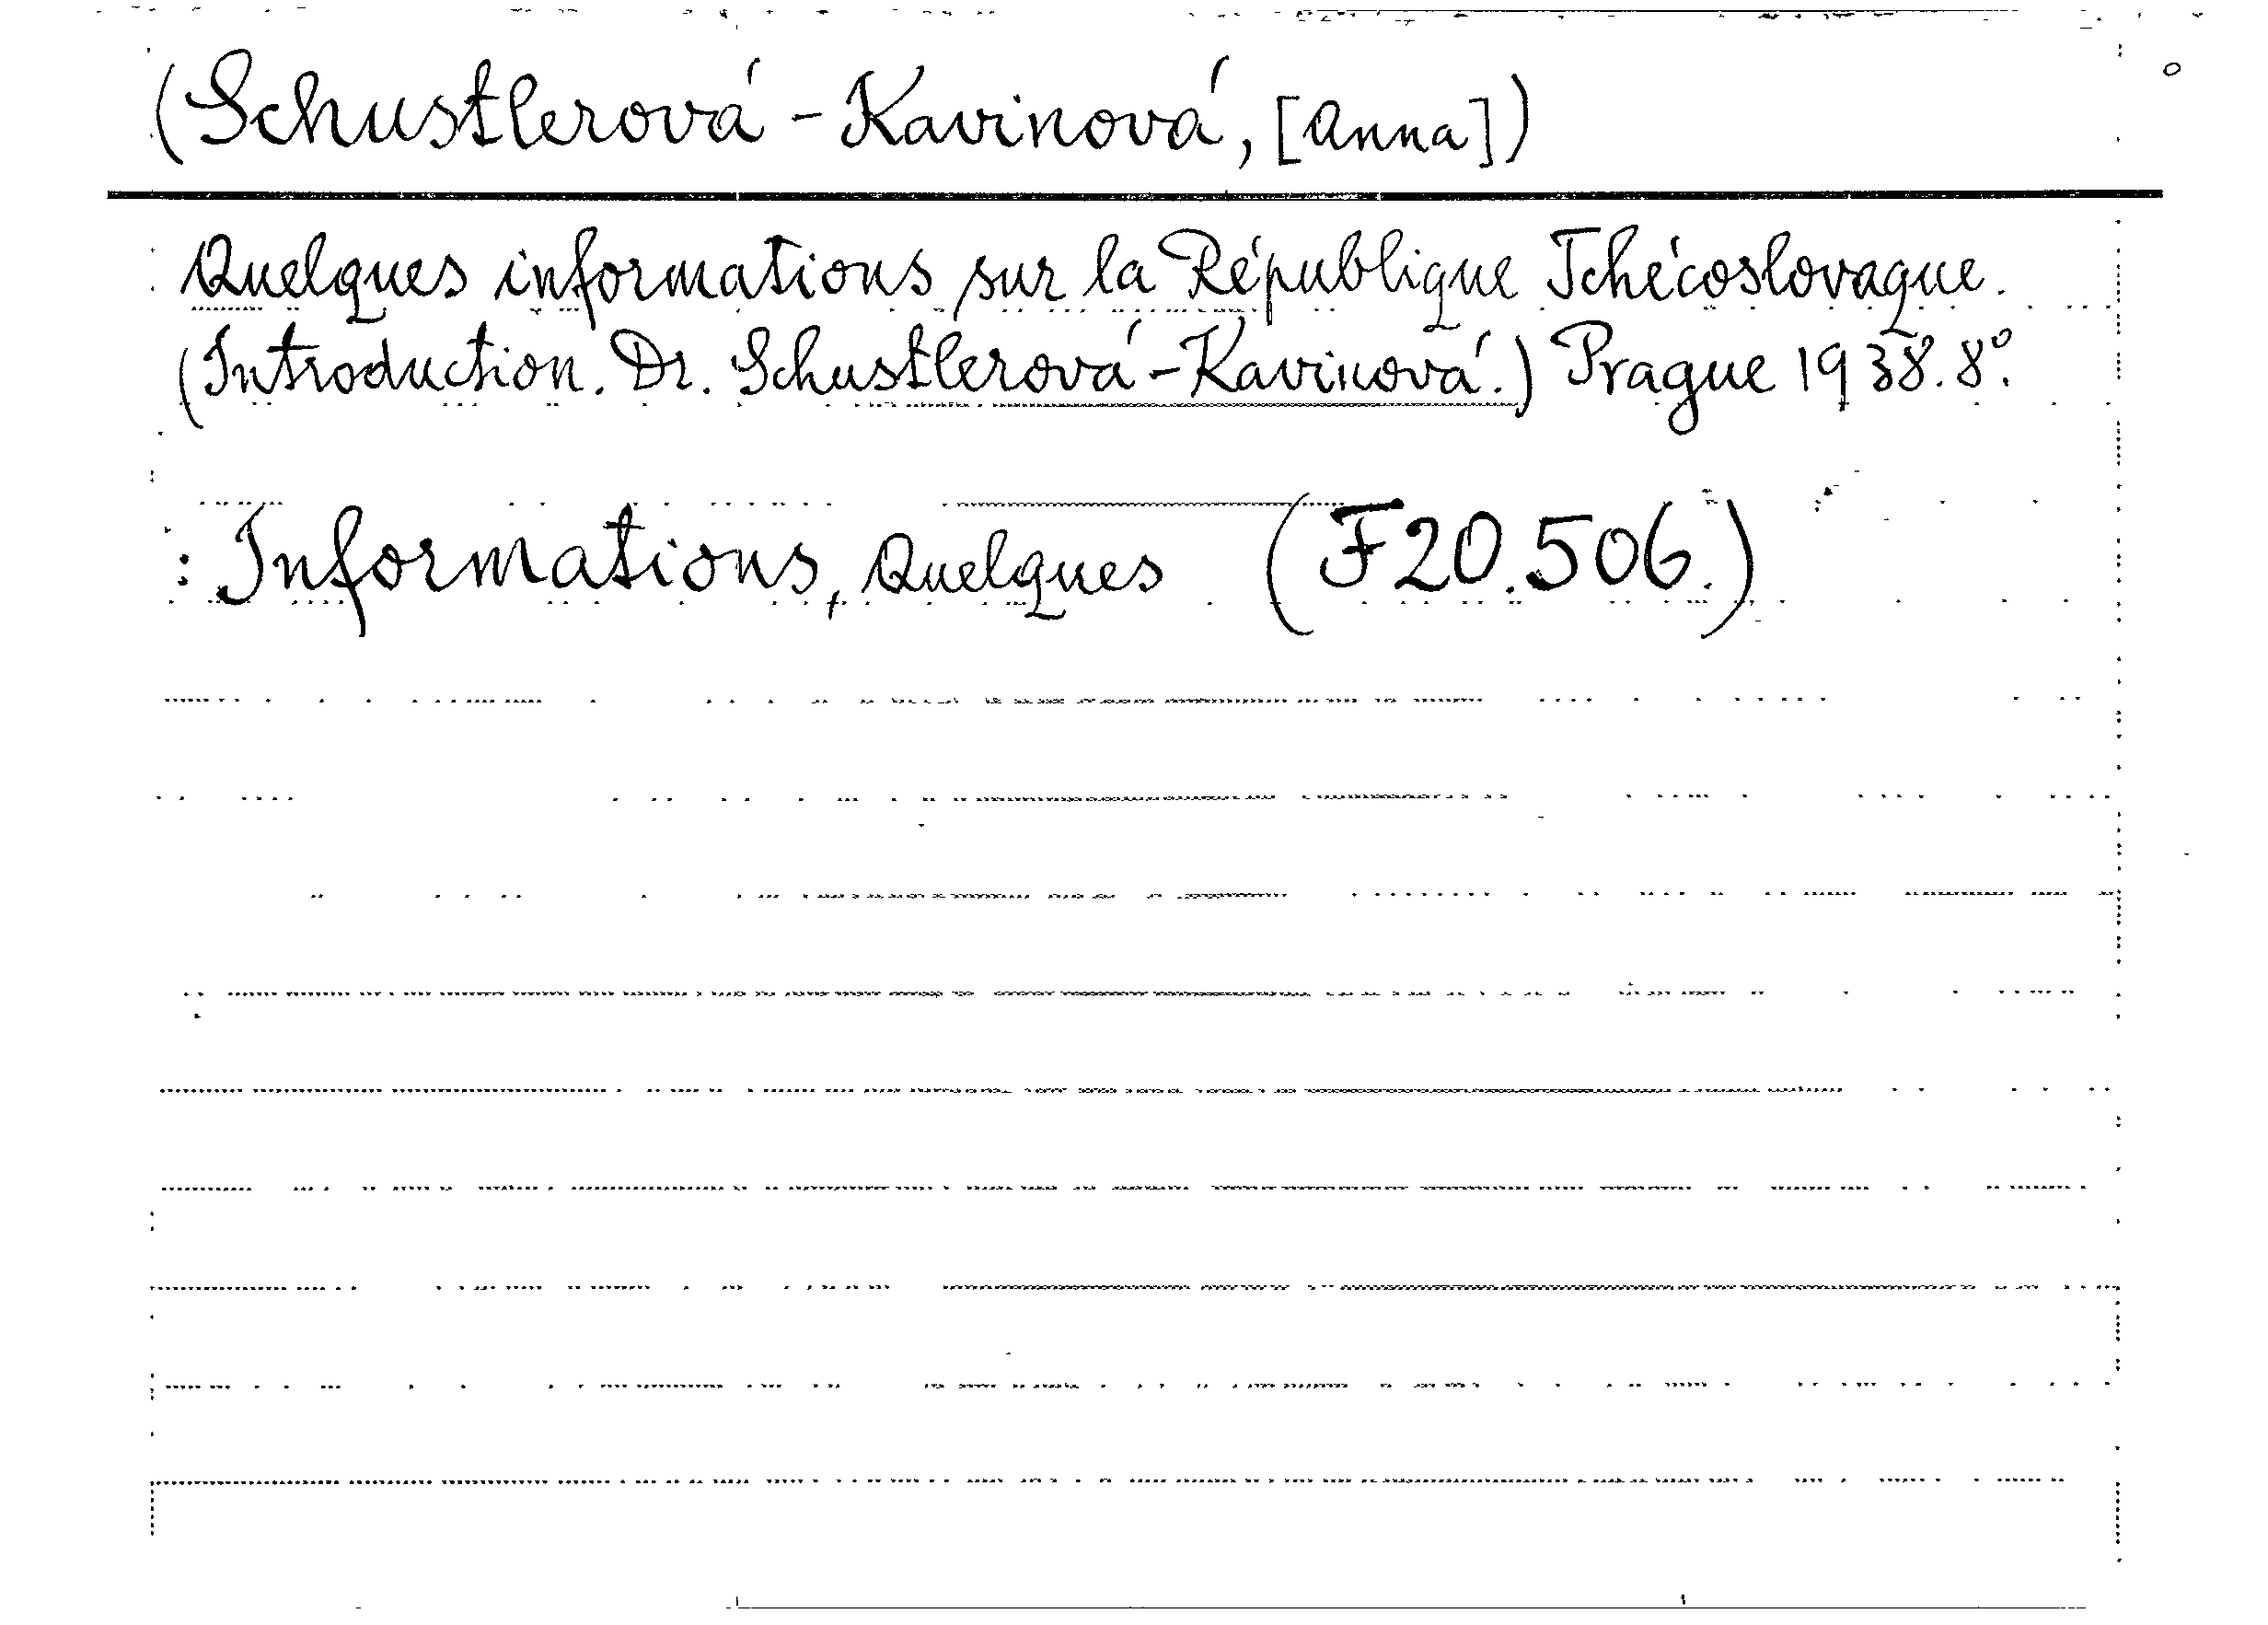 (Schustlerová-Kavinová, [Anna])
Quelques informations sur la République Tchécoslovaque.
(Introduction. Dr. Schustlerová-Kavinová.) Prague 1938. 8°.
: Informations, Quelques (F20.506.)